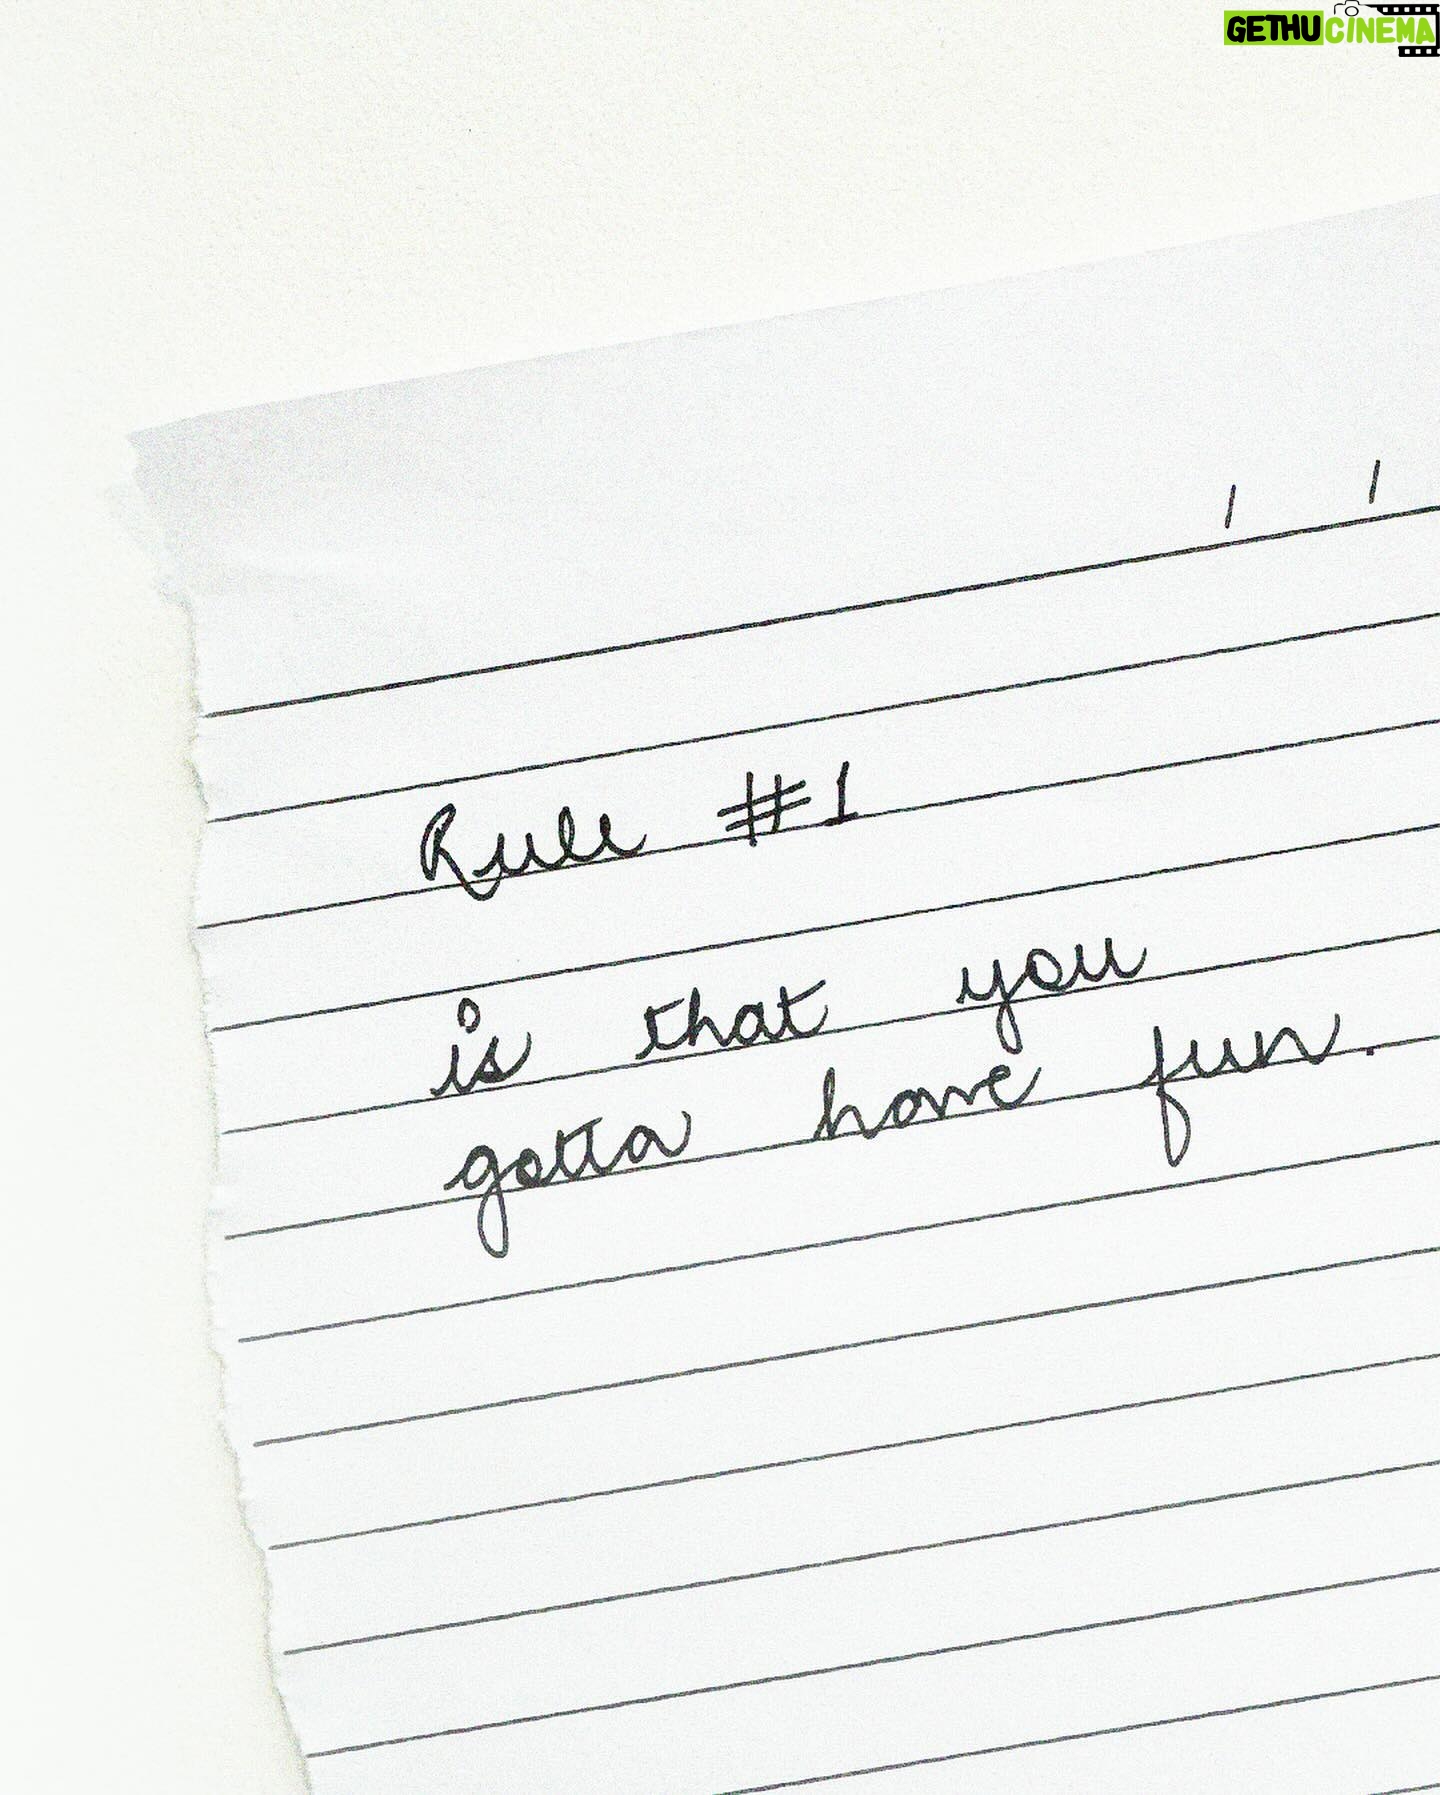 GETHUCINEMA
Rule #1
is that you
gotta have fun.